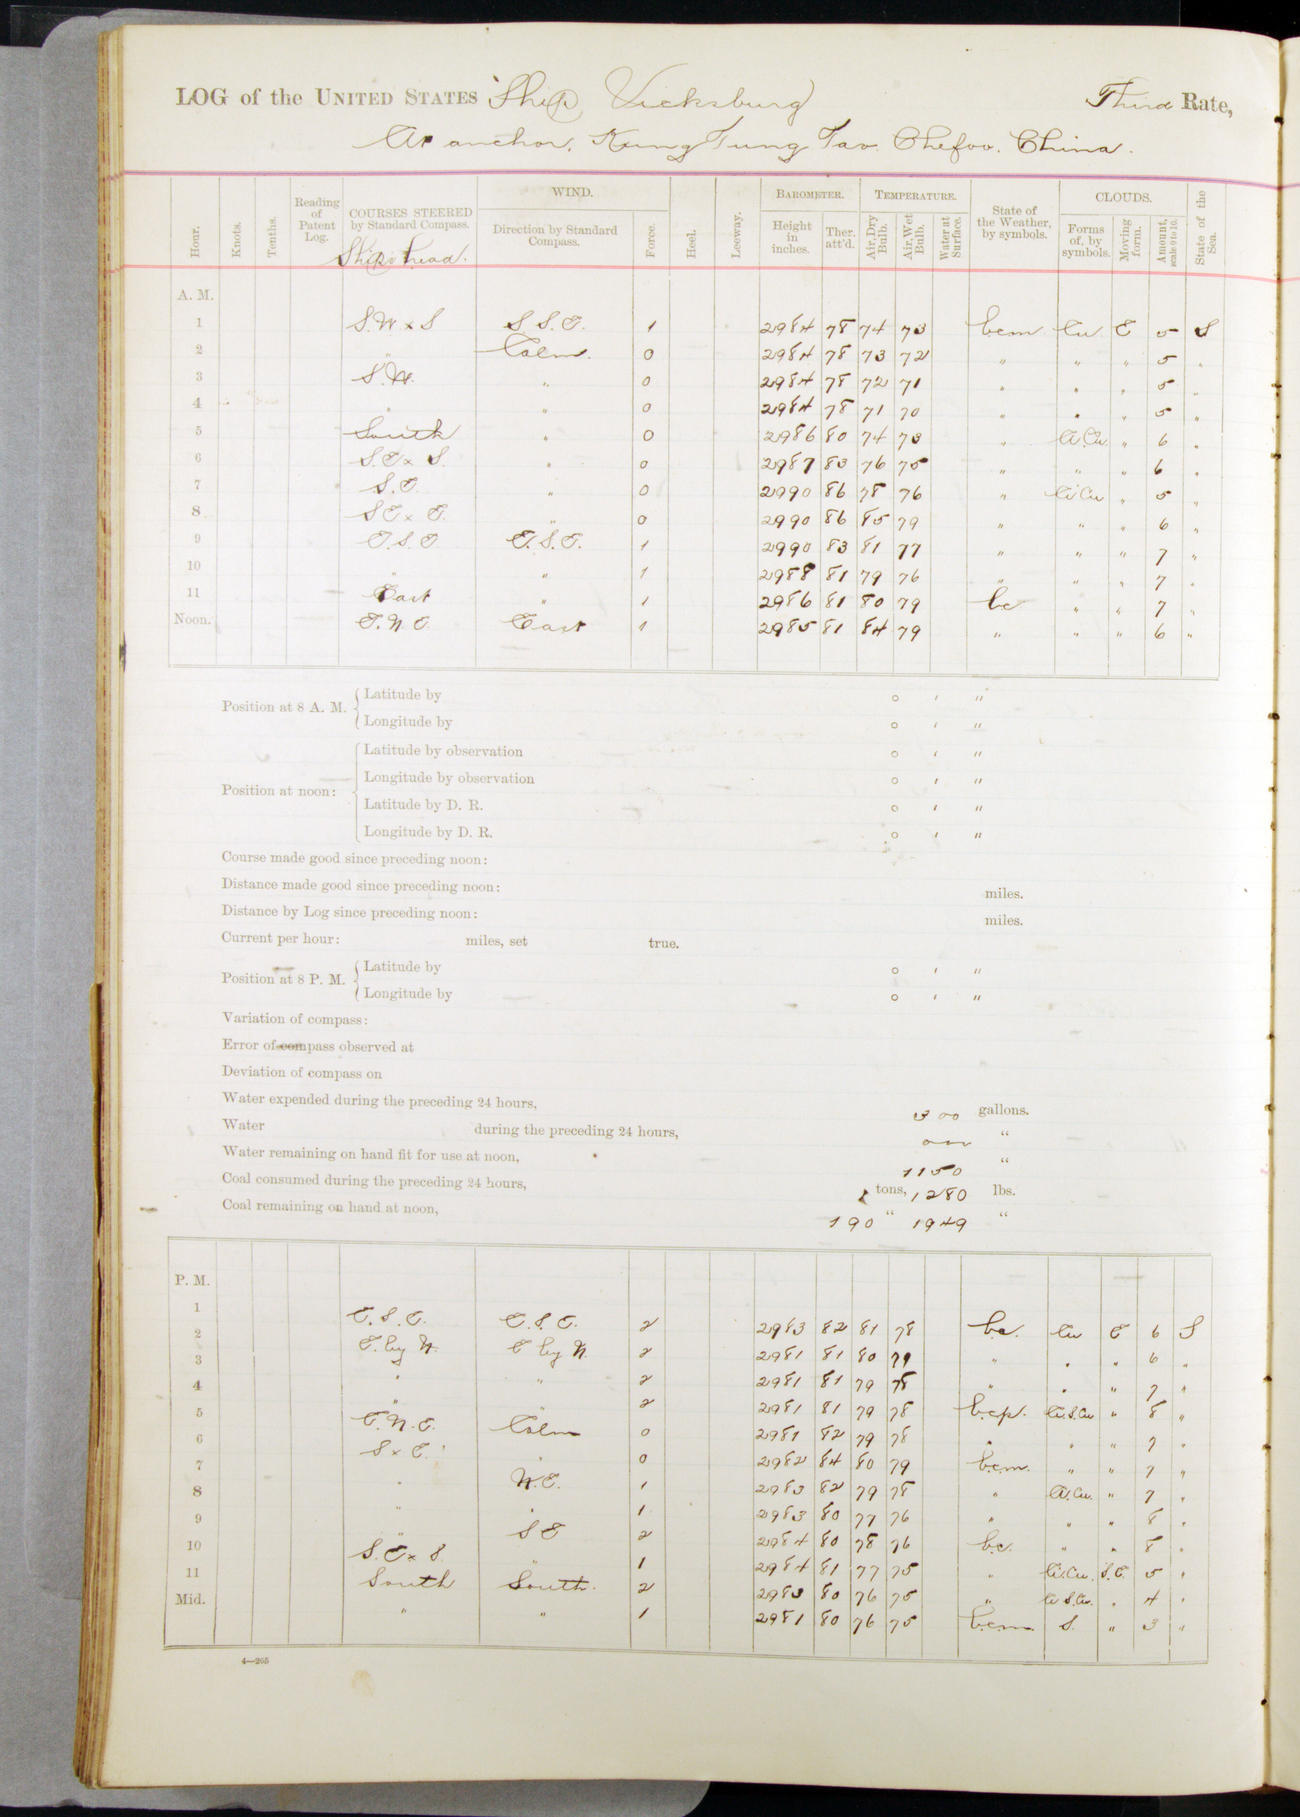 LOG of the UNITED STATES Ship Vicksburg Third Rate,
At anchor, Kung Tung Tao. Chefoo. China.
Hour. Knots. Tenths. Reading of Patent Log. COURSES STEERED by Standard Compass. Ship's head. WIND. Direction by Standard Compass. Force. Heel. Leeway. BAROMETER. Height in inches. Ther. att'd. TEMPERATURE. Air, Dry Bulb. Air, Wet Bulb. Water at Surface. State of the Weather, by symbols. CLOUDS. Forms of, by symbols. Moving form. Amount, scale 0 to 10. State of the Sea.
A. M.
1 S.W x S S S.E. 1 2984 78 74 73 bcm Cu. E 5 S
2 " Calm. 0 2984 78 73 72 " " " 5 "
3 S.W. " 0 2984 78 72 71 " " " 5 "
4 " " 0 2984 78 71 70 " " " 5 "
5 South " 0 2986 80 74 73 " A Cu. " 6 "
6 S.E x S. " 0 2987 83 76 75 " " " 6 "
7 S.E. " 0 2990 86 78 76 " Ci Cu " 5 "
8 SE x E. " 0 2990 86 85 79 " " " 6 "
9 E.S.E. E.S.E. 1 2990 83 81 77 " " " 7 "
10 " " 1 2988 81 79 76 " " " 7 "
11 East " 1 2986 81 80 79 bc " " 7 "
Noon. E.N.E. East 1 2985 81 84 79 " " " 6 "
Position at 8 A. M. Latitude by ° ′ ″
Longitude by ° ′ ″
Latitude by observation ° ′ ″
Position at noon: Longitude by observation ° ′ ″
Latitude by D. R. ° ′ ″
Longitude by D. R. ° ′ ″
Course made good since preceding noon:
Distance made good since preceding noon: miles.
Distance by Log since preceding noon: miles.
Current per hour: miles, set true.
Position at 8 P. M. Latitude by ° ′ ″
Longitude by ° ′ ″
Variation of compass:
Error of compass observed at
Deviation of compass on
Water expended during the preceding 24 hours, 300 gallons.
Water during the preceding 24 hours, "
Water remaining on hand fit for use at noon, 1150 "
Coal consumed during the preceding 24 hours, tons, 1280 lbs.
Coal remaining on hand at noon, 190 " 1949 "
P. M.
1 E.S.E. E.S.E. 2 2983 82 81 78 bc. Cu E 6 S
2 E. by N. E by N. 2 2981 81 80 79 " " " 6 "
3 " " 2 2981 81 79 78 " " " 7 "
4 " " 2 2981 81 79 78 bcp. Cu. S.Cu " 8 "
5 E.N.E. Calm 0 2981 82 79 78 " " " 7 "
6 S x E. " 0 2982 84 80 79 bcm. " " 7 "
7 " N.E. 1 2983 82 79 78 " A.Cu. " 7 "
8 " " 1 2983 80 77 76 " " " 8 "
9 " S E 2 2984 80 78 76 bc. " " 8 "
10 S.E x S. " 1 2984 81 77 75 " Ci.Cu. S.E. 5 "
11 South South. 2 2983 80 76 75 " Ci S.Cu. " 4 "
Mid. " " 1 2981 80 76 75 bcm S. " 3 "
4—265